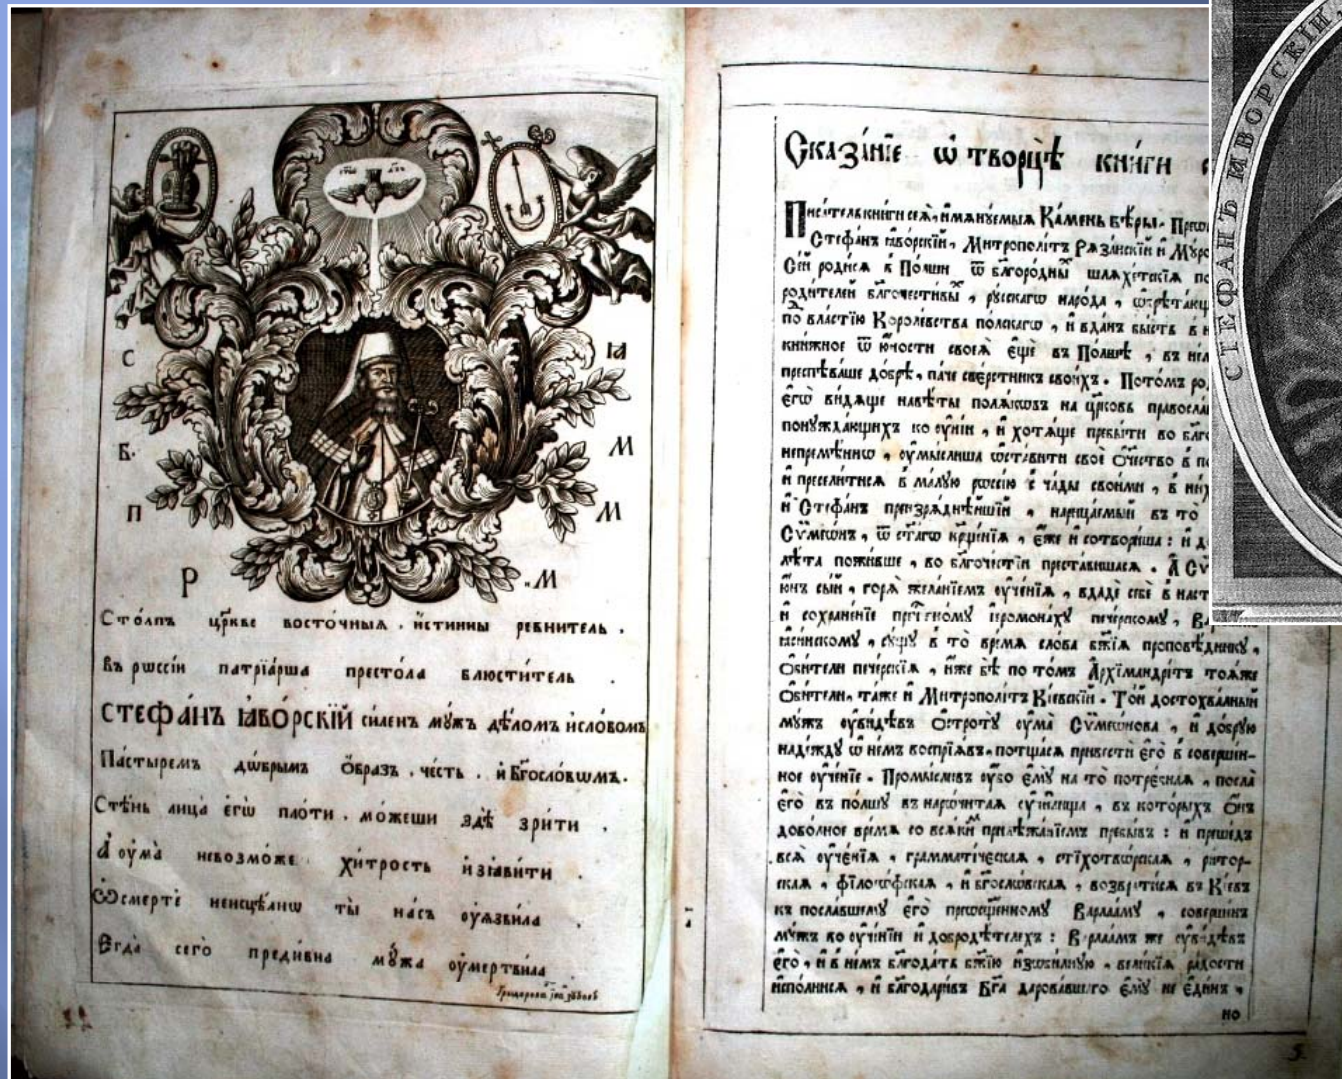 С ІА
Б. М
П М
Р М
Сто́лпъ цр҃кве восто́чныя , и҆стинны ревнитель .
Въ рѡссі́и патрїа́рша престо́ла блюсти́тель .
СТЕФА́НЪ ІАВО́РСКІЙ си́ленъ мꙋ́жъ дѣ́ломъ и҆сло́вомъ
Па́стыремъ дѡ́брымъ ѻ҆́бразъ . че́сть . и҆ Бг҃осло́вѡмъ .
Стѣ́нь лица̀ є҆гѡ̀ пло́ти . мо́жеши здѣ̀ зрѣ́ти .
А҆ оу҆ма̀ невозмо́же хи́трость и҆з̾ѧви́ти .
Ѽ сме́рте неисцѣ́лнѡ ты̀ на́съ оу҆язви́ла
Є҆гда̀ сего̀ преди́вна мꙋ́жа оу҆мертви́ла
Сказа́нїе ѡ҆ творцѣ̀ кни́ги
Писа́тель кни́ги сеѧ̀ , и҆мянꙋ́емыѧ Ка́мень вѣ́ры .
Стефа́нъ ꙗ҆во́рскїй , Митрополі́тъ Рѧза́нскїй и҆
Се́й роди́сѧ в По́лши ѿ бл҃горо́дны шлѧхе́тскїѧ
роди́телей бл҃гочести́вы , рꙋ́сскагѡ наро́да ,
по вла́стїю Короле́вства по́лскагѡ , и҆ вда́нъ бы́сть в
кни́жное ѿ ю҆́ности своеѧ̀ є҆щѐ въ По́лшѣ , въ
преспѣва́ше до́брѣ , па́че све́рстникъ свои́хъ . Пото́мъ
є҆гѡ̀ ви́дѧще навѣ́ты полѧ́кѡвъ на цр҃ковь
понꙋжда́ющихъ ко оу҆нї́и , и҆ хотѧ́ще пребы́ти во
непремѣ́ннѡ , оу҆мы́слиша ѡ҆ста́вити своѐ ѻ҆те́чество в
и҆ пресели́тисѧ в ма́лꙋю рѡссі́ю с ча́ды свои́ми , в
и҆ Стефа́нъ преизрѧ́днѣйшїй , нарица́емый въ то̀
Сѷмеѡ́нъ , ѿ ст҃а́гѡ кр҃ще́нїѧ , є҆́же и҆ сотвори́ша : и҆
лѣ́та пожи́вше , во бл҃гоче́стїи преста́вишасѧ . А҆
ю҆́нъ сы́й , горѧ̀ жела́нїемъ оу҆че́нїѧ , вдадѐ себѐ в
и҆ сохране́нїе і҆еромона́хꙋ пече́рскомꙋ ,
ꙗ҆си́нскомꙋ , сꙋ́щꙋ в то̀ вре́мѧ сло́ва бж҃їѧ проповѣ́дникꙋ ,
ѻ҆би́тели пече́рскїѧ , и҆́же бѣ̀ по то́мъ Архїмандрі́тъ тоѧ́же
ѻ҆би́тели , та́же и҆ Митрополі́тъ Кі́евскїй . То́й достохва́лный
мꙋ́жъ оу҆ви́дѣвъ ѻ҆стротꙋ̀ оу҆ма̀ Сѷмеѡ́нова , и҆ до́брꙋю
наде́ждꙋ ѡ҆ не́мъ воспрїѧ́въ , потща́сѧ привестѝ є҆го̀ в соверше́н-
ное оу҆че́нїе . Промы́сливъ оу҆́бо є҆мꙋ̀ на то̀ потре́бнаѧ , посла̀
є҆го̀ въ по́лшꙋ въ нарочи́таѧ оу҆чи́лища , въ кото́рыхъ ѻ҆́нъ
дово́лное вре́мѧ со всѧ́ки прилѣжа́нїемъ пребы́въ : и҆ преше́дъ
всѧ̀ оу҆че́нїѧ , граммати́ческаѧ , стїхотво́рскаѧ , ритор-
скаѧ , фїлосо́фскаѧ , и҆ бг҃осло́вскаѧ , возврати́сѧ въ Кі́евъ
къ посла́вшемꙋ є҆го̀ преѡсщ҃е́нномꙋ Варлаа́мꙋ , соверше́нъ
мꙋ́жъ во оу҆че́нїи и҆ добродѣ́телехъ : Варлаа́мъ же оу҆ви́дѣвъ
є҆го̀ , и҆ в не́мъ бл҃года́ть бж҃їю и҆зоби́лнꙋю , вели́кїѧ ра́дости
и҆спо́лнисѧ , и҆ бл҃годари́въ Бг҃а дарова́вшаго є҆мꙋ̀ не є҆ди́нъ ,
но
5.
СТЕФАНЪ ЯВОРСКІИ